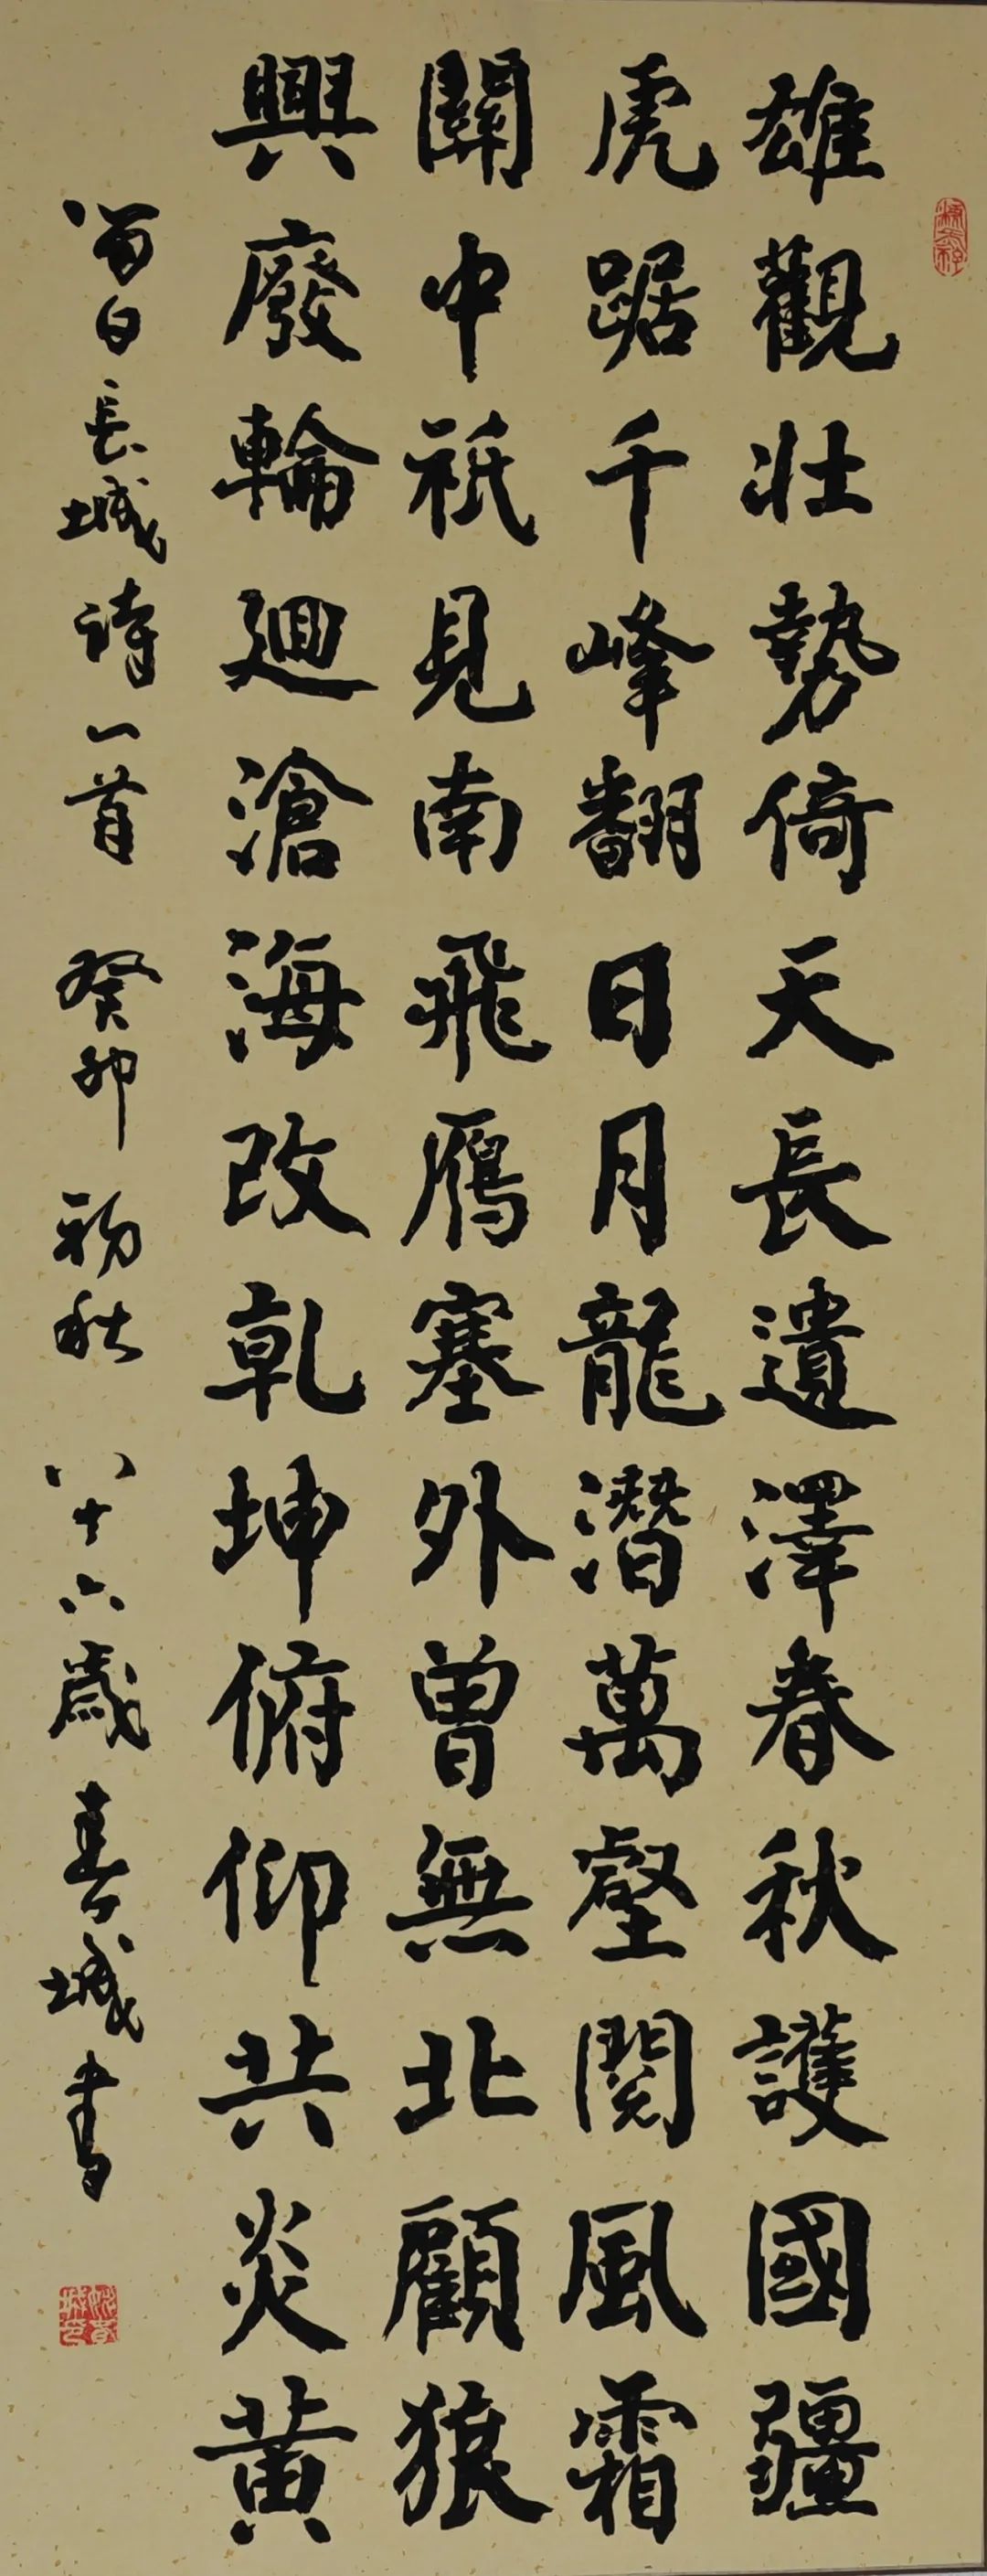 雄觀壯勢倚天長遺澤春秋護國疆
虎踞千峰翻日月龍潛萬壑閱風霜
關中祇見南飛雁塞外曾無北顧狼
興廢輪迴滄海改乾坤俯仰共炎黃
留白長城詩一首 癸卯初秋 八十六歲春城書